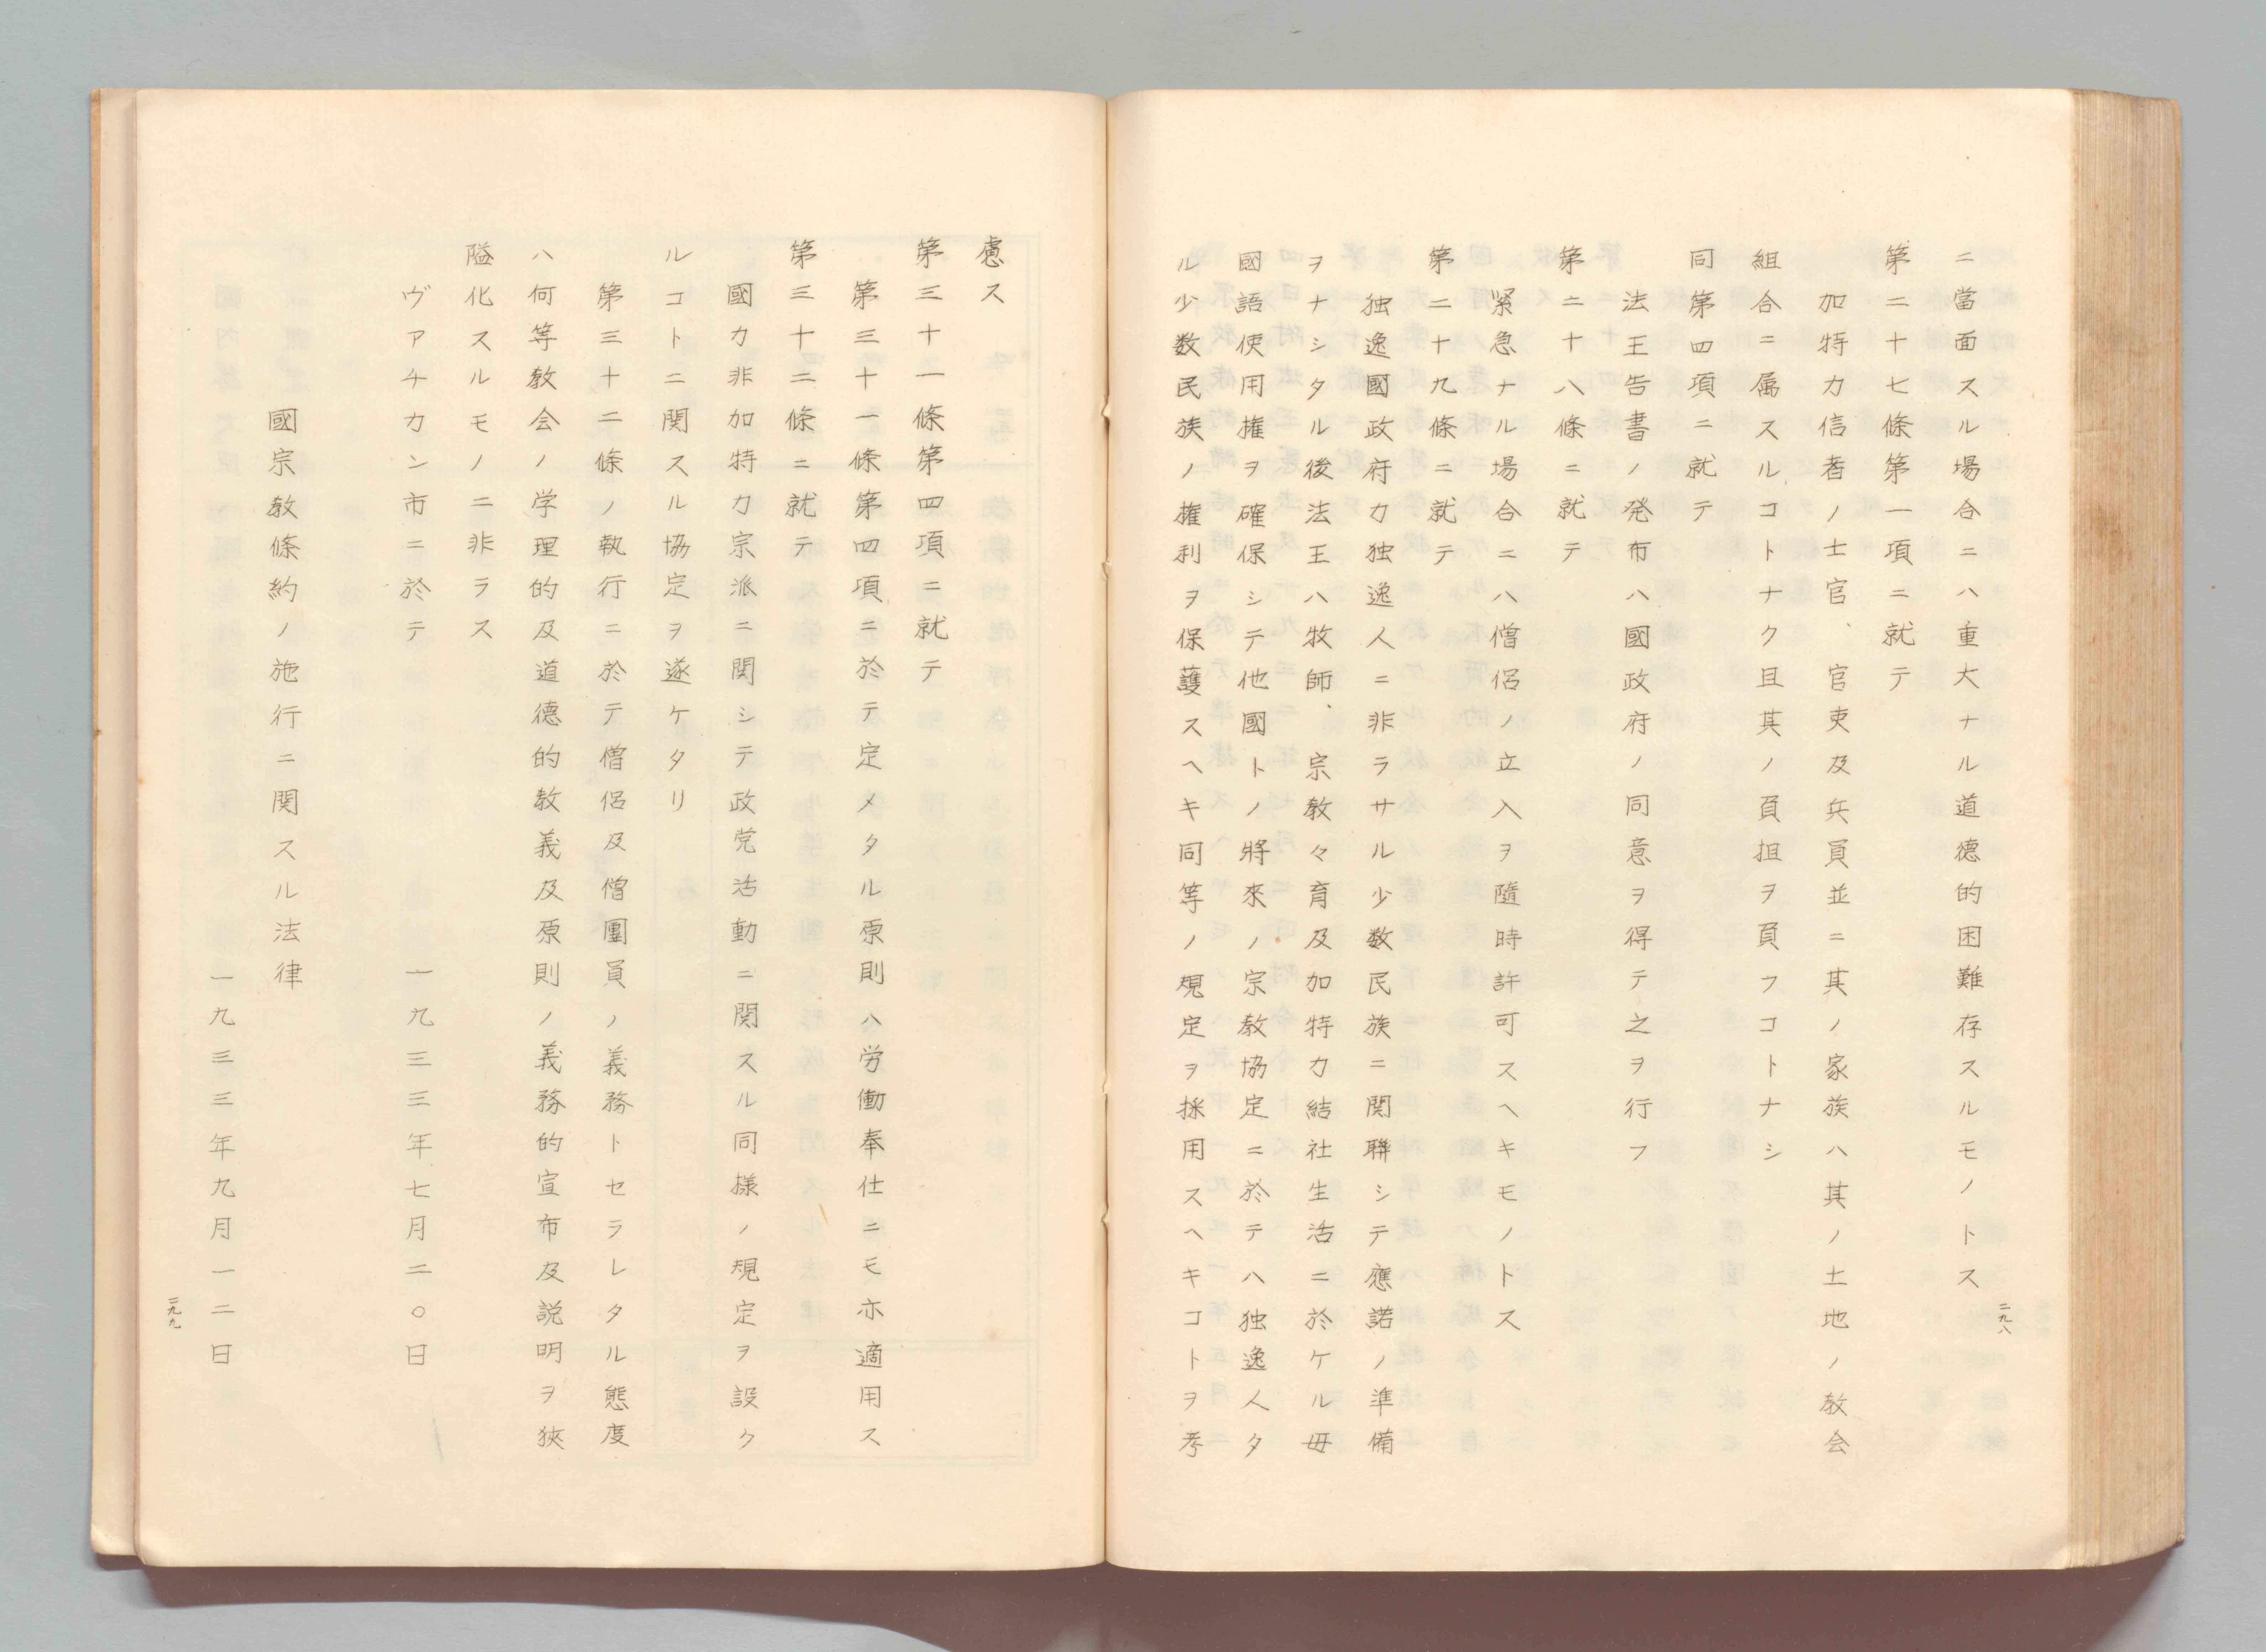 ニ當面スル場合ニハ重大ナル道德的困難存スルモノトス
第二十七條第一項ニ就テ
加特力信者ノ士官、官吏及兵員並ニ其ノ家族ハ其ノ土地ノ教会
組合ニ属スルコトナク且其ノ負担ヲ負フコトナシ
同第四項ニ就テ
法王告書ノ発布ハ國政府ノ同意ヲ得テ之ヲ行フ
第二十八條ニ就テ
緊急ナル場合ニハ僧侶ノ立入ヲ隨時許可スヘキモノトス
第二十九條ニ就テ
独逸國政府カ独逸人ニ非ラサル少数民族ニ関聯シテ應諾ノ準備
ヲナシタル後法王ハ牧師、宗教々育及加特力結社生活ニ於ケル毋
國語使用權ヲ確保シテ他國トノ將來ノ宗教協定ニ於テハ独逸人タ
ル少数民族ノ權利ヲ保護スヘキ同等ノ規定ヲ採用スヘキコトヲ考
二九八
慮ス
第三十一條第四項ニ就テ
第三十一條第四項ニ於テ定メタル原則ハ労働奉仕ニモ亦適用ス
第三十二條ニ就テ
國カ非加特力宗派ニ関シテ政党活動ニ関スル同様ノ規定ヲ設ク
ルコトニ関スル協定ヲ遂ケタリ
第三十二條ノ執行ニ於テ僧侶及僧團員ノ義務トセラレタル態度
ハ何等教会ノ学理的及道德的教義及原則ノ義務的宣布及説明ヲ狹
隘化スルモノニ非ラス
ヴアチカン市ニ於テ 一九三三年七月二〇日
國宗教條約ノ施行ニ関スル法律
一九三三年九月一二日
二九九